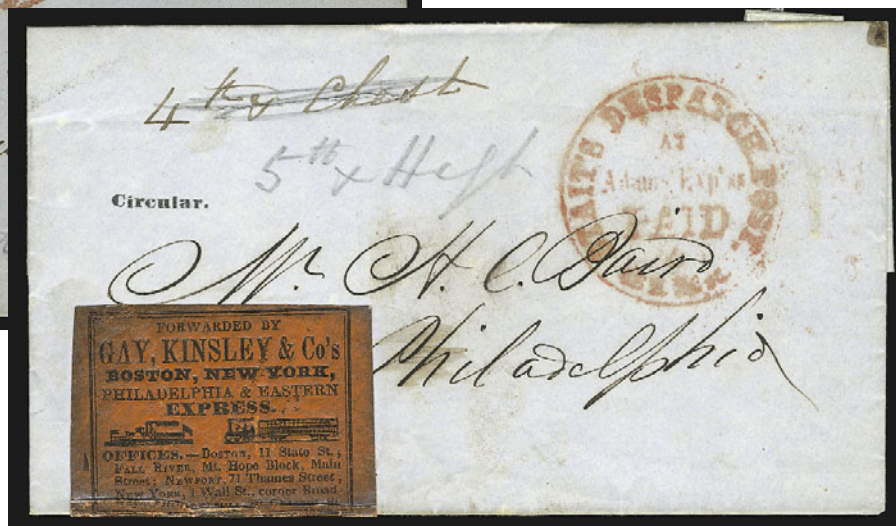 4th & Chest
5th & High
Circular.
WAIT'S DESPATCH POST
AT
Adams' Exp'ss
PAID
Mr. H. C. Baird
Philadelphia
FORWARDED BY
GAY, KINSLEY & Co's
BOSTON, NEW YORK,
PHILADELPHIA & EASTERN
EXPRESS.
OFFICES.—BOSTON, 11 State St.;
FALL RIVER, Mt. Hope Block, Main
Street; NEWPORT, 71 Thames Street;
NEW YORK, 1 Wall St., corner Broad